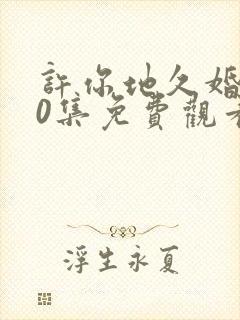 許你地久婚
0集免費觀看
浮生永夏